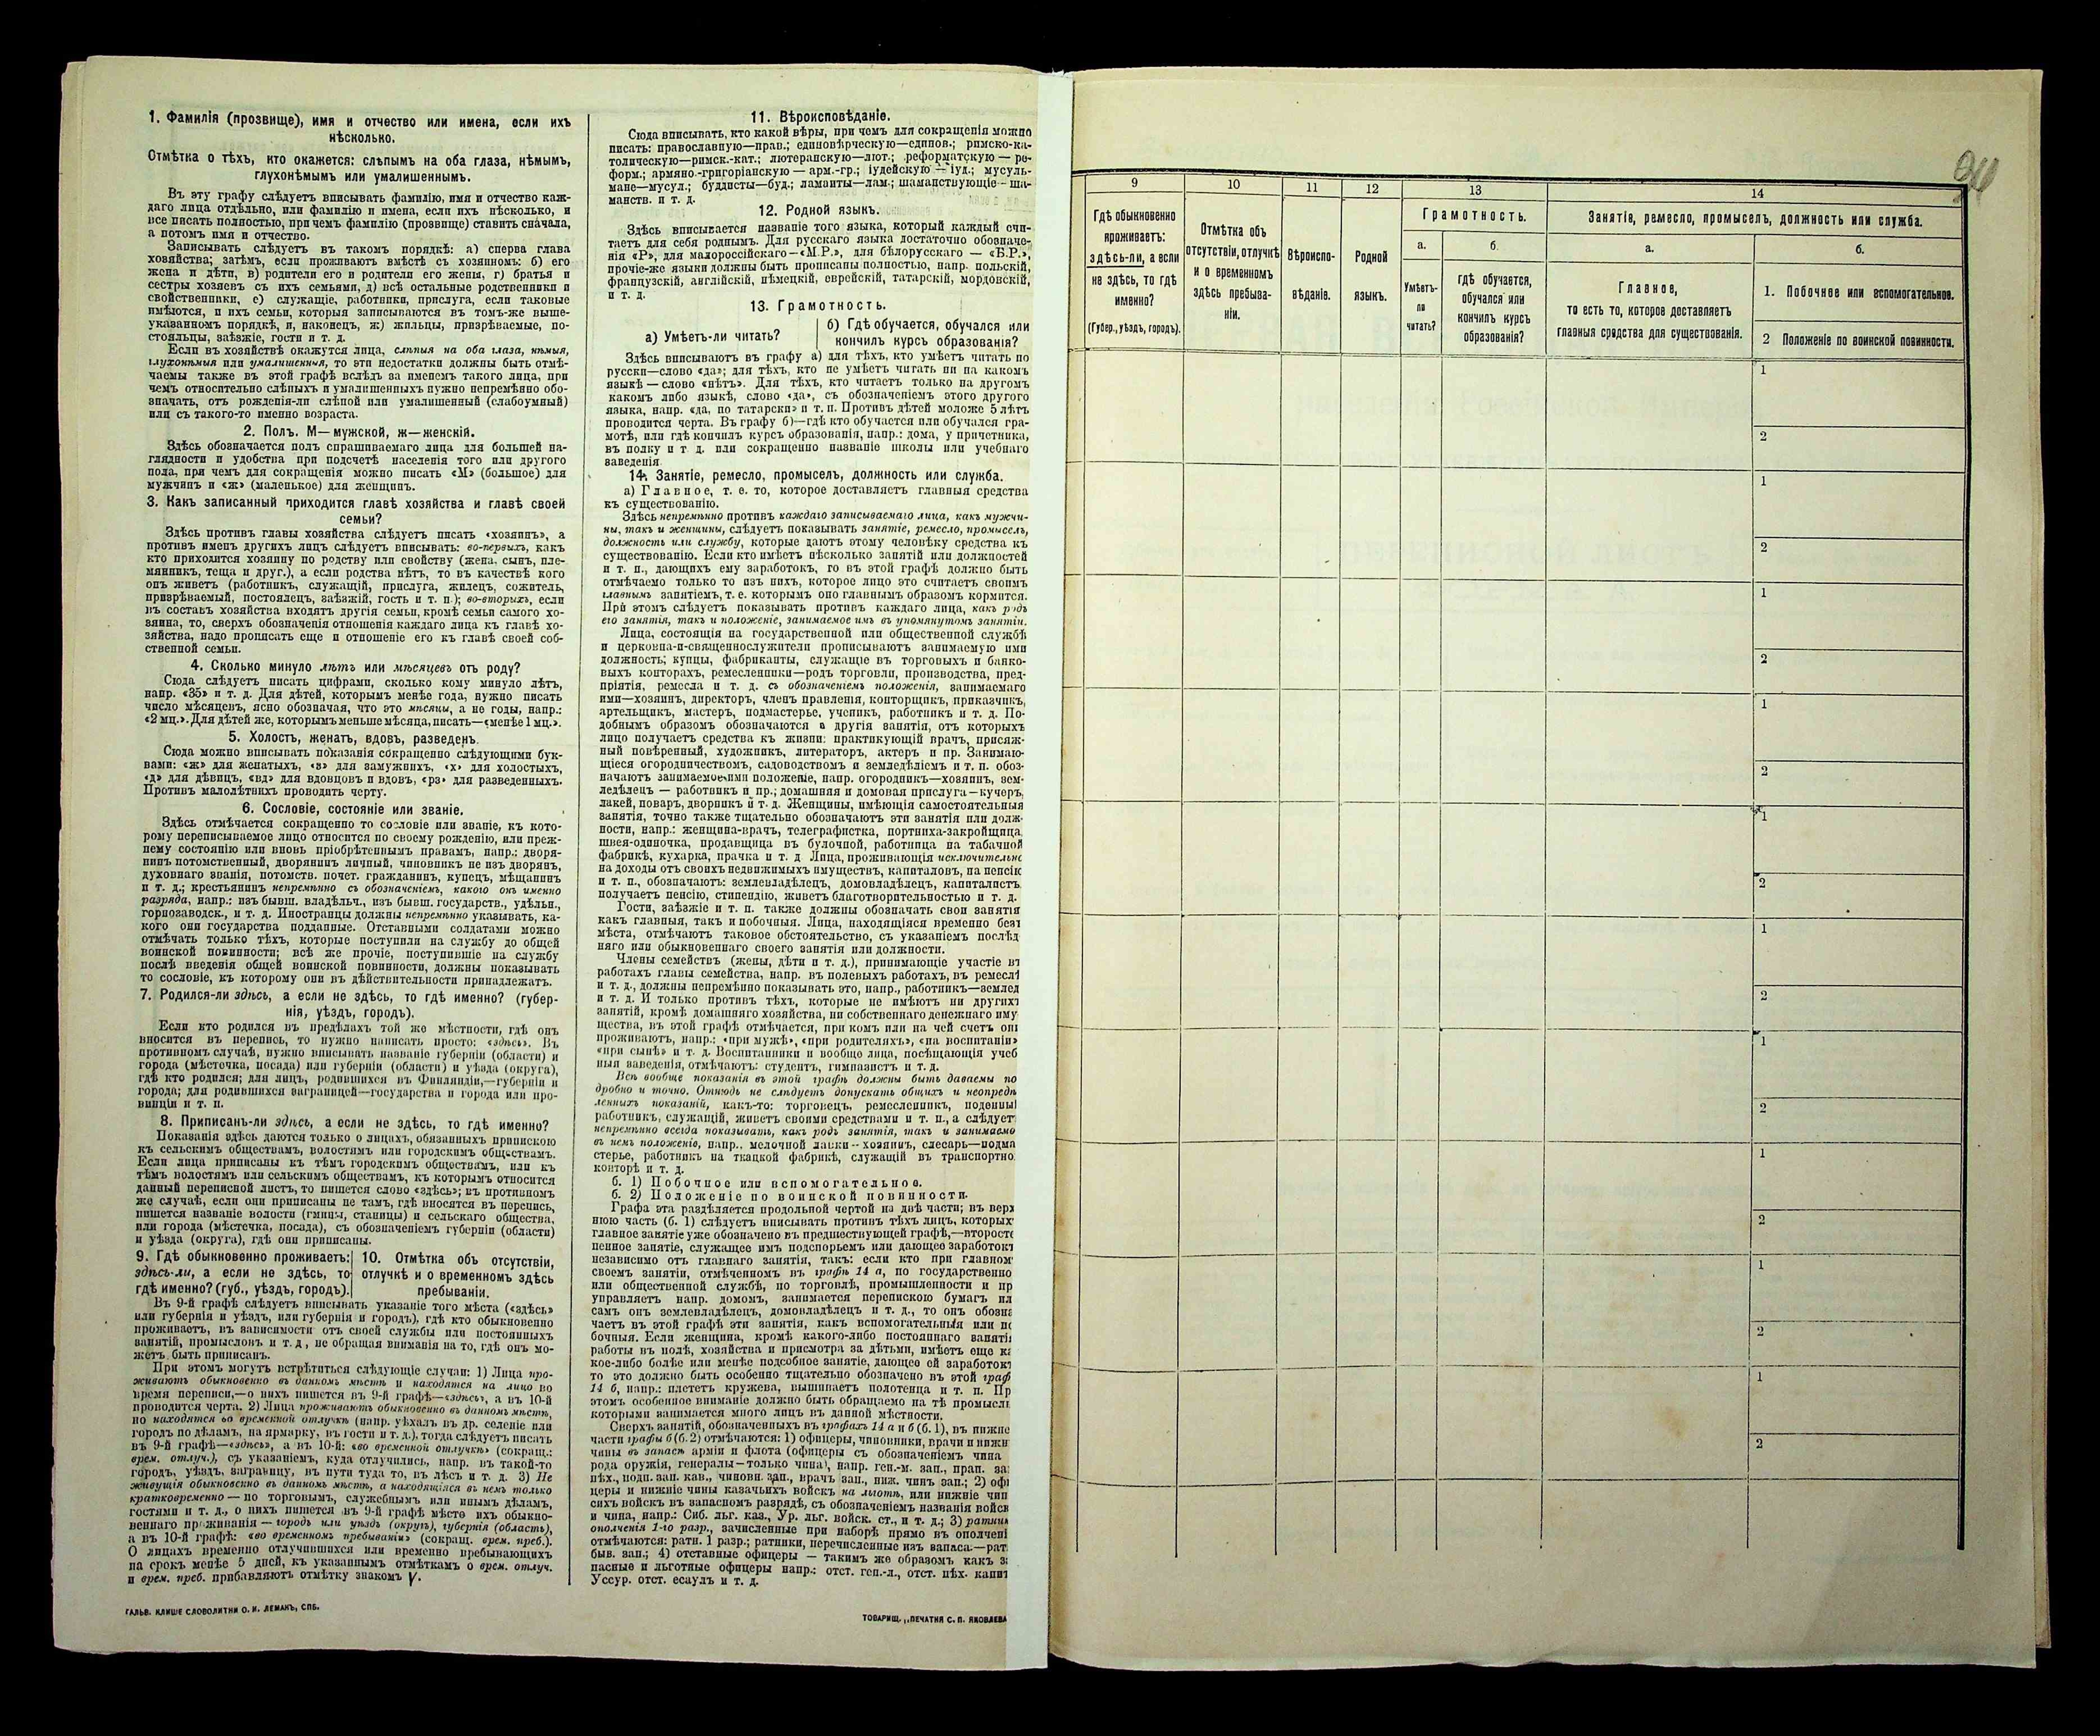 1. Фамилія (прозвище), имя и отчество или имена, если ихъ
нѣсколько.
Отмѣтка о тѣхъ, кто окажется: слѣпымъ на оба глаза, нѣмымъ,
глухонѣмымъ или умалишеннымъ.
Въ эту графу слѣдуетъ вписывать фамилію, имя и отчество каж-
даго лица отдѣльно, или фамилію и имена, если ихъ нѣсколько, и
все писать полностью, при чемъ фамилію (прозвище) ставить сначала,
а потомъ имя и отчество.
Записывать слѣдуетъ въ такомъ порядкѣ: а) сперва глава
хозяйства; затѣмъ, если проживаютъ вмѣстѣ съ хозяиномъ: б) его
жена и дѣти, в) родители его и родители его жены, г) братья и
сестры хозяевъ съ ихъ семьями, д) всѣ остальные родственники и
свойственники, е) служащіе, работники, прислуга, если таковые
имѣются, и ихъ семьи, которыя записываются въ томъ-же выше-
указанномъ порядкѣ, и, наконецъ, ж) жильцы, призрѣваемые, по-
стояльцы, заѣзжіе, гости и т. д.
Если въ хозяйствѣ окажутся лица, слѣпыя на оба глаза, нѣмыя,
глухонѣмыя или умалишенныя, то эти недостатки должны быть отмѣ-
чаемы также въ этой графѣ вслѣдъ за именемъ такого лица, при
чемъ относительно слѣпыхъ и умалишенныхъ нужно непремѣнно обо-
значать, отъ рожденія-ли слѣпой или умалишенный (слабоумный)
или съ такого-то именно возраста.
2. Полъ. М—мужской, ж—женскій.
Здѣсь обозначается полъ спрашиваемаго лица для большей на-
глядности и удобства при подсчетѣ населенія того или другого
пола, при чемъ для сокращенія можно писать «М» (большое) для
мужчинъ и «ж» (маленькое) для женщинъ.
3. Какъ записанный приходится главѣ хозяйства и главѣ своей
семьи?
Здѣсь противъ главы хозяйства слѣдуетъ писать «хозяинъ», а
противъ именъ другихъ лицъ слѣдуетъ вписывать: во-первыхъ, какъ
кто приходится хозяину по родству или свойству (жена, сынъ, пле-
мянникъ, теща и друг.), а если родства нѣтъ, то въ качествѣ кого
онъ живетъ (работникъ, служащій, прислуга, жилецъ, сожитель,
призрѣваемый, постоялецъ, заѣзжій, гость и т. п.); во-вторыхъ, если
въ составъ хозяйства входятъ другія семьи, кромѣ семьи самого хо-
зяина, то, сверхъ обозначенія отношенія каждаго лица къ главѣ хо-
зяйства, надо прописать еще и отношеніе его къ главѣ своей соб-
ственной семьи.
4. Сколько минуло лѣтъ или мѣсяцевъ отъ роду?
Сюда слѣдуетъ писать цифрами, сколько кому минуло лѣтъ,
напр. «35» и т. д. Для дѣтей, которымъ менѣе года, нужно писать
число мѣсяцевъ, ясно обозначая, что это мѣсяцы, а не годы, напр.:
«2 мц.». Для дѣтей же, которымъ меньше мѣсяца, писать—«менѣе 1 мц.».
5. Холостъ, женатъ, вдовъ, разведенъ.
Сюда можно вписывать показанія сокращенно слѣдующими бук-
вами: «ж» для женатыхъ, «з» для замужнихъ, «х» для холостыхъ,
«д» для дѣвицъ, «вд» для вдовцовъ и вдовъ, «рз» для разведенныхъ.
Противъ малолѣтнихъ проводить черту.
6. Сословіе, состояніе или званіе.
Здѣсь отмѣчается сокращенно то сословіе или званіе, къ кото-
рому переписываемое лицо относится по своему рожденію, или преж-
нему состоянію или вновь пріобрѣтеннымъ правамъ, напр.: дворя-
нинъ потомственный, дворянинъ личный, чиновникъ не изъ дворянъ,
духовнаго званія, потомств. почет. гражданинъ, купецъ, мѣщанинъ
и т. д.; крестьянинъ непремѣнно съ обозначеніемъ, какого онъ именно
разряда, напр.: изъ бывш. владѣльч., изъ бывш. государств., удѣльн.,
горнозаводск., и т. д. Иностранцы должны непремѣнно указывать, ка-
кого они государства подданные. Отставными солдатами можно
отмѣчать только тѣхъ, которые поступили на службу до общей
воинской повинности; всѣ же прочіе, поступившіе на службу
послѣ введенія общей воинской повинности, должны показывать
то сословіе, къ которому они въ дѣйствительности принадлежатъ.
7. Родился-ли здѣсь, а если не здѣсь, то гдѣ именно? (губер-
нія, уѣздъ, городъ).
Если кто родился въ предѣлахъ той же мѣстности, гдѣ онъ
вносится въ перепись, то нужно написать просто: «здѣсь». Въ
противномъ случаѣ, нужно вписывать названіе губерніи (области) и
города (мѣстечка, посада) или губерніи (области) и уѣзда (округа),
гдѣ кто родился; для лицъ, родившихся въ Финляндіи,—губерніи и
города; для родившихся заграницей—государства и города или про-
винціи и т. п.
8. Приписанъ-ли здѣсь, а если не здѣсь, то гдѣ именно?
Показанія здѣсь даются только о лицахъ, обязанныхъ припискою
къ сельскимъ обществамъ, волостямъ или городскимъ обществамъ.
Если лица приписаны къ тѣмъ городскимъ обществамъ, или къ
тѣмъ волостямъ или сельскимъ обществамъ, къ которымъ относится
данный переписной листъ, то пишется слово «здѣсь»; въ противномъ
же случаѣ, если они приписаны не тамъ, гдѣ вносятся въ перепись,
пишется названіе волости (гмины, станицы) и сельскаго общества,
или города (мѣстечка, посада), съ обозначеніемъ губерніи (области)
и уѣзда (округа), гдѣ они приписаны.
9. Гдѣ обыкновенно проживаетъ:
здѣсь-ли, а если не здѣсь, то
гдѣ именно? (губ., уѣздъ, городъ).
10. Отмѣтка объ отсутствіи,
отлучкѣ и о временномъ здѣсь
пребываніи.
Въ 9-й графѣ слѣдуетъ вписывать указаніе того мѣста («здѣсь»
или губернія и уѣздъ, или губернія и городъ), гдѣ кто обыкновенно
проживаетъ, въ зависимости отъ своей службы или постоянныхъ
занятій, промысловъ и т. д., не обращая вниманія на то, гдѣ онъ мо-
жетъ быть приписанъ.
При этомъ могутъ встрѣтиться слѣдующіе случаи: 1) Лица про-
живаютъ обыкновенно въ данномъ мѣстѣ и находятся на лицо во
время переписи,—о нихъ пишется въ 9-й графѣ—«здѣсь», а въ 10-й
проводится черта. 2) Лица проживаютъ обыкновенно въ данномъ мѣстѣ,
но находятся во временной отлучкѣ (напр. уѣхалъ въ др. селеніе или
городъ по дѣламъ, на ярмарку, въ гости и т. д.), тогда слѣдуетъ писать
въ 9-й графѣ—«здѣсь», а въ 10-й: «во временной отлучкѣ» (сокращ.:
врем. отлуч.), съ указаніемъ, куда отлучились, напр. въ такой-то
городъ, уѣздъ, заграницу, въ пути туда то, въ лѣсъ и т. д. 3) Не
живущія обыкновенно въ данномъ мѣстѣ, а находящіяся въ немъ только
кратковременно — по торговымъ, служебнымъ или инымъ дѣламъ,
гостями и т. д., о нихъ пишется въ 9-й графѣ мѣсто ихъ обыкно-
веннаго проживанія — городъ или уѣздъ (округъ), губернія (область),
а въ 10-й графѣ: «во временномъ пребываніи» (сокращ. врем. преб.).
О лицахъ временно отлучившихся или временно пребывающихъ
на срокъ менѣе 5 дней, къ указаннымъ отмѣткамъ о врем. отлуч.
и врем. преб. прибавляютъ отмѣтку знакомъ V.
ГАЛЬВ. КЛИШЕ СЛОВОЛИТНИ О. И. ЛЕМАНЪ, СПБ.
11. Вѣроисповѣданіе.
Сюда вписывать, кто какой вѣры, при чемъ для сокращенія можно
писать: православную—прав.; единовѣрческую—единов.; римско-ка-
толическую—римск.-кат.; лютеранскую—лют.; реформатскую — ре-
форм.; армяно-григоріанскую — арм.-гр.; іудейскую — іуд.; мусуль-
мане—мусул.; буддисты—буд.; ламаиты—лам.; шаманствующіе — ша-
манств. и т. д.
12. Родной языкъ.
Здѣсь вписывается названіе того языка, который каждый счи-
таетъ для себя роднымъ. Для русскаго языка достаточно обозначе-
нія «Р», для малороссійскаго—«М.Р.», для бѣлорусскаго — «Б.Р.»,
прочіе-же языки должны быть прописаны полностью, напр. польскій,
французскій, англійскій, нѣмецкій, еврейскій, татарскій, мордовскій,
и т. д.
13. Грамотность.
а) Умѣетъ-ли читать?
б) Гдѣ обучается, обучался или
кончилъ курсъ образованія?
Здѣсь вписываютъ въ графу а) для тѣхъ, кто умѣетъ читать по
русски—слово «да»; для тѣхъ, кто не умѣетъ читать ни на какомъ
языкѣ — слово «нѣтъ». Для тѣхъ, кто читаетъ только на другомъ
какомъ либо языкѣ, слово «да», съ обозначеніемъ этого другого
языка, напр. «да, по татарски» и т. п. Противъ дѣтей моложе 5 лѣтъ
проводится черта. Въ графу б)—гдѣ кто обучается или обучался гра-
мотѣ, или гдѣ кончилъ курсъ образованія, напр.: дома, у причетника,
въ полку и т. д. или сокращенно названіе школы или учебнаго
заведенія
14. Занятіе, ремесло, промыселъ, должность или служба.
а) Главное, т. е. то, которое доставляетъ главныя средства
къ существованію.
Здѣсь непремѣнно противъ каждаго записываемаго лица, какъ мужчи-
ны, такъ и женщины, слѣдуетъ показывать занятіе, ремесло, промыселъ,
должность или службу, которые даютъ этому человѣку средства къ
существованію. Если кто имѣетъ нѣсколько занятій или должностей
и т. п., дающихъ ему заработокъ, то въ этой графѣ должно быть
отмѣчаемо только то изъ нихъ, которое лицо это считаетъ своимъ
главнымъ занятіемъ, т. е. которымъ оно главнымъ образомъ кормится.
При этомъ слѣдуетъ показывать противъ каждаго лица, какъ родъ
его занятія, такъ и положеніе, занимаемое имъ въ упомянутомъ занятіи.
Лица, состоящія на государственной или общественной службѣ
и церковно-и-священнослужители прописываютъ занимаемую ими
должность; купцы, фабриканты, служащіе въ торговыхъ и банко-
выхъ конторахъ, ремесленники—родъ торговли, производства, пред-
пріятія, ремесла и т. д. съ обозначеніемъ положенія, занимаемаго
ими—хозяинъ, директоръ, членъ правленія, конторщикъ, приказчикъ,
артельщикъ, мастеръ, подмастерье, ученикъ, работникъ и т. д. По-
добнымъ образомъ обозначаются и другія занятія, отъ которыхъ
лицо получаетъ средства къ жизни: практикующій врачъ, присяж-
ный повѣренный, художникъ, литераторъ, актеръ и пр. Занимаю-
щіеся огородничествомъ, садоводствомъ и земледѣліемъ и т. п. обоз-
начаютъ занимаемое ими положеніе, напр. огородникъ—хозяинъ, зем-
ледѣлецъ — работникъ и пр.; домашняя и домовая прислуга—кучеръ,
лакей, поваръ, дворникъ и т. д. Женщины, имѣющія самостоятельныя
занятія, точно также тщательно обозначаютъ эти занятія или долж-
ности, напр.: женщина-врачъ, телеграфистка, портниха-закройщица,
швея-одиночка, продавщица въ булочной, работница на табачной
фабрикѣ, кухарка, прачка и т. д. Лица, проживающія исключительно
на доходы отъ своихъ недвижимыхъ имуществъ, капиталовъ, на пенсію
и т. п., обозначаютъ: землевладѣлецъ, домовладѣлецъ, капиталистъ,
получаетъ пенсію, стипендію, живетъ благотворительностью и т. д.
Гости, заѣзжіе и т. п. также должны обозначать свои занятія
какъ главныя, такъ и побочныя. Лица, находящіяся временно безъ
мѣста, отмѣчаютъ таковое обстоятельство, съ указаніемъ послѣд
няго или обыкновеннаго своего занятія или должности.
Члены семействъ (жены, дѣти и т. д.), принимающіе участіе въ
работахъ главы семейства, напр. въ полевыхъ работахъ, въ ремеслѣ
и т. д., должны непремѣнно показывать это, напр., работникъ—землед
и т. д. И только противъ тѣхъ, которые не имѣютъ ни другихъ
занятій, кромѣ домашняго хозяйства, ни собственнаго денежнаго иму
щества, въ этой графѣ отмѣчается, при комъ или на чей счетъ они
проживаютъ, напр.: «при мужѣ», «при родителяхъ», «на воспитаніи»
«при сынѣ» и т. д. Воспитанники и вообще лица, посѣщающія учеб
ныя заведенія, отмѣчаютъ: студентъ, гимназистъ и т. д.
Всѣ вообще показанія въ этой графѣ должны быть даваемы по
дробно и точно. Отнюдь не слѣдуетъ допускать общихъ и неопредѣ
ленныхъ показаній, какъ-то: торговецъ, ремесленникъ, поденный
работникъ, служащій, живетъ своими средствами и т. п., а слѣдуетъ
непремѣнно всегда показывать, какъ родъ занятія, такъ и занимаемо
въ немъ положеніе, напр.. мелочной лавки—хозяинъ, слесарь—подма
стерье, работникъ на ткацкой фабрикѣ, служащій въ транспортно
конторѣ и т. д.
б. 1) Побочное или вспомогательное.
б. 2) Положеніе по воинской повинности.
Графа эта раздѣляется продольной чертой на двѣ части; въ верх
нюю часть (б. 1) слѣдуетъ вписывать противъ тѣхъ лицъ, которыхъ
главное занятіе уже обозначено въ предшествующей графѣ,—второсте
пенное занятіе, служащее имъ подспорьемъ или дающее заработокъ
независимо отъ главнаго занятія, такъ: если кто при главномъ
своемъ занятіи, отмѣченномъ въ графѣ 14 а, по государственно
или общественной службѣ, по торговлѣ, промышленности и пр
управляетъ напр. домомъ, занимается перепискою бумагъ ил
самъ онъ землевладѣлецъ, домовладѣлецъ и т. д., то онъ обозна
чаетъ въ этой графѣ эти занятія, какъ вспомогательныя или по
бочныя. Если женщина, кромѣ какого-либо постояннаго заняті
работы въ полѣ, хозяйства и присмотра за дѣтьми, имѣетъ еще ка
кое-либо болѣе или менѣе подсобное занятіе, дающее ей заработокъ
то это должно быть особенно тщательно обозначено въ этой граф
14 б, напр.: плететъ кружева, вышиваетъ полотенца и т. п. Пр
этомъ особенное вниманіе должно быть обращаемо на тѣ промыслы
которыми занимается много лицъ въ данной мѣстности.
Сверхъ занятій, обозначенныхъ въ графахъ 14 а и б (б. 1), въ нижне
части графы б (б. 2) отмѣчаются: 1) офицеры, чиновники, врачи и нижн
чины въ запасѣ арміи и флота (офицеры съ обозначеніемъ чина
рода оружія, генералы—только чина), напр. ген.-м. зап., прап. за
пѣх., подп. зап. кав., чиновн. зап., врачъ зап., ниж. чинъ зап.; 2) офи
церы и нижніе чины казачьихъ войскъ на льготѣ, или нижніе чин
сихъ войскъ въ запасномъ разрядѣ, съ обозначеніемъ названія войск
и чина, напр.: Сиб. льг. каз., Ур. льг. войск. ст., и т. д.; 3) ратник
ополченія 1-го разр., зачисленные при наборѣ прямо въ ополчені
отмѣчаются: ратн. 1 разр.; ратники, перечисленные изъ запаса:—рат
быв. зап.; 4) отставные офицеры — такимъ же образомъ какъ за
пасные и льготные офицеры напр.: отст. ген.-л., отст. пѣх. капит
Уссур. отст. есаулъ и т. д.
ТОВАРИЩ. „ПЕЧАТНЯ С. П. ЯКОВЛЕВА
9
10
11
12
13
14
Гдѣ обыкновенно
проживаетъ:
здѣсь-ли, а если
не здѣсь, то гдѣ
именно?
(Губер., уѣздъ, городъ).
Отмѣтка объ
отсутствіи, отлучкѣ
и о временномъ
здѣсь пребыва-
ніи.
Вѣроиспо-
вѣданіе.
Родной
языкъ.
Грамотность.
а.
Умѣетъ-
ли
читать?
б.
гдѣ обучается,
обучался или
кончилъ курсъ
образованія?
Занятіе, ремесло, промыселъ, должность или служба.
а.
Главное,
то есть то, которое доставляетъ
главныя средства для существованія.
б.
1. Побочное или вспомогательное.
2 Положеніе по воинской повинности.
1
2
1
2
1
2
1
2
1
2
1
2
1
2
1
2
1
2
1
2